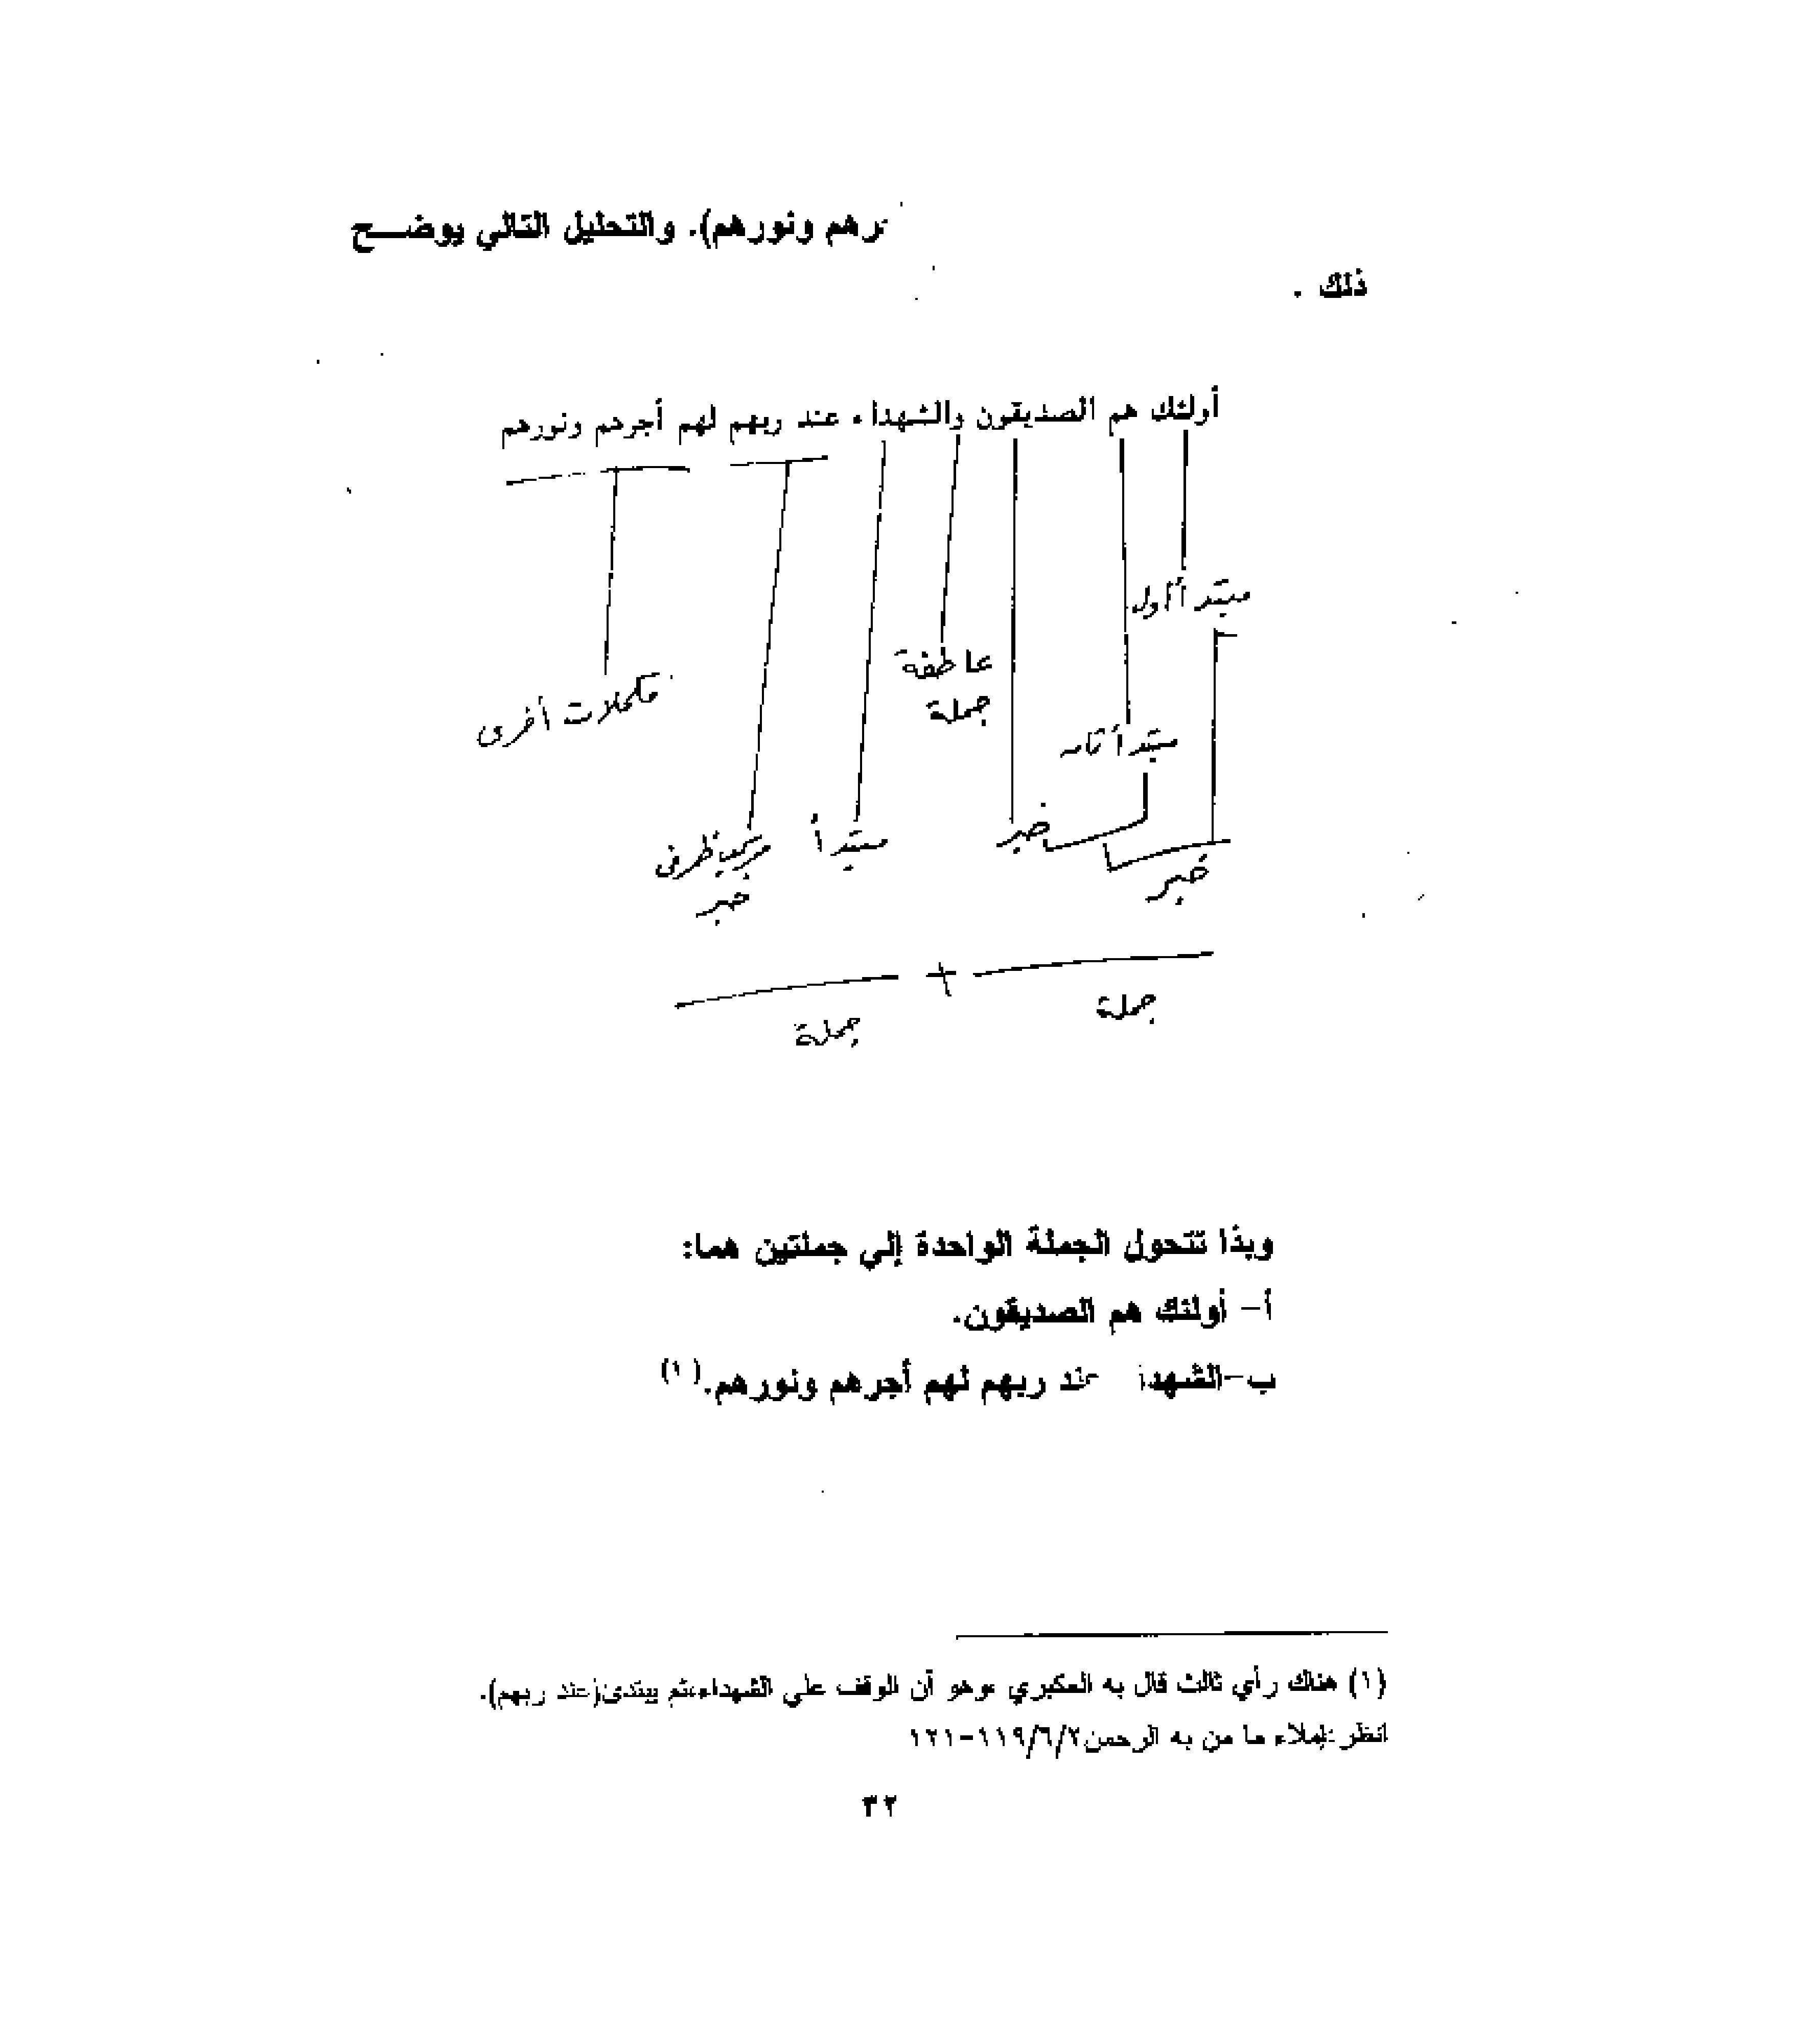 ونورهم). والتحليل التالي يوضـــح
ذلك .
أولئك هم الصديقون والشهداء عند ربهم لهم أجرهم ونورهم
مبتدأ أول
عاطفة
جملة
مكملات أخرى
مبتدأ ثان
خبر
مبتدأ
ظرفي
خبر
خبر
+
جملة
جملة
وبذا تتحول الجملة الواحدة إلي جملتين هما:
أ- أولئك هم الصديقون.
ب-الشهدا عند ربهم لهم أجرهم ونورهم.(١)
(١) هناك رأي ثالث قال به العكبري ،وهو أن الوقف علي الشهداء،ثم يبتدئ(عند ربهم).
انظر :إملاء ما من به الرحمن١١٩/٦/٢-١٢١
٣٢